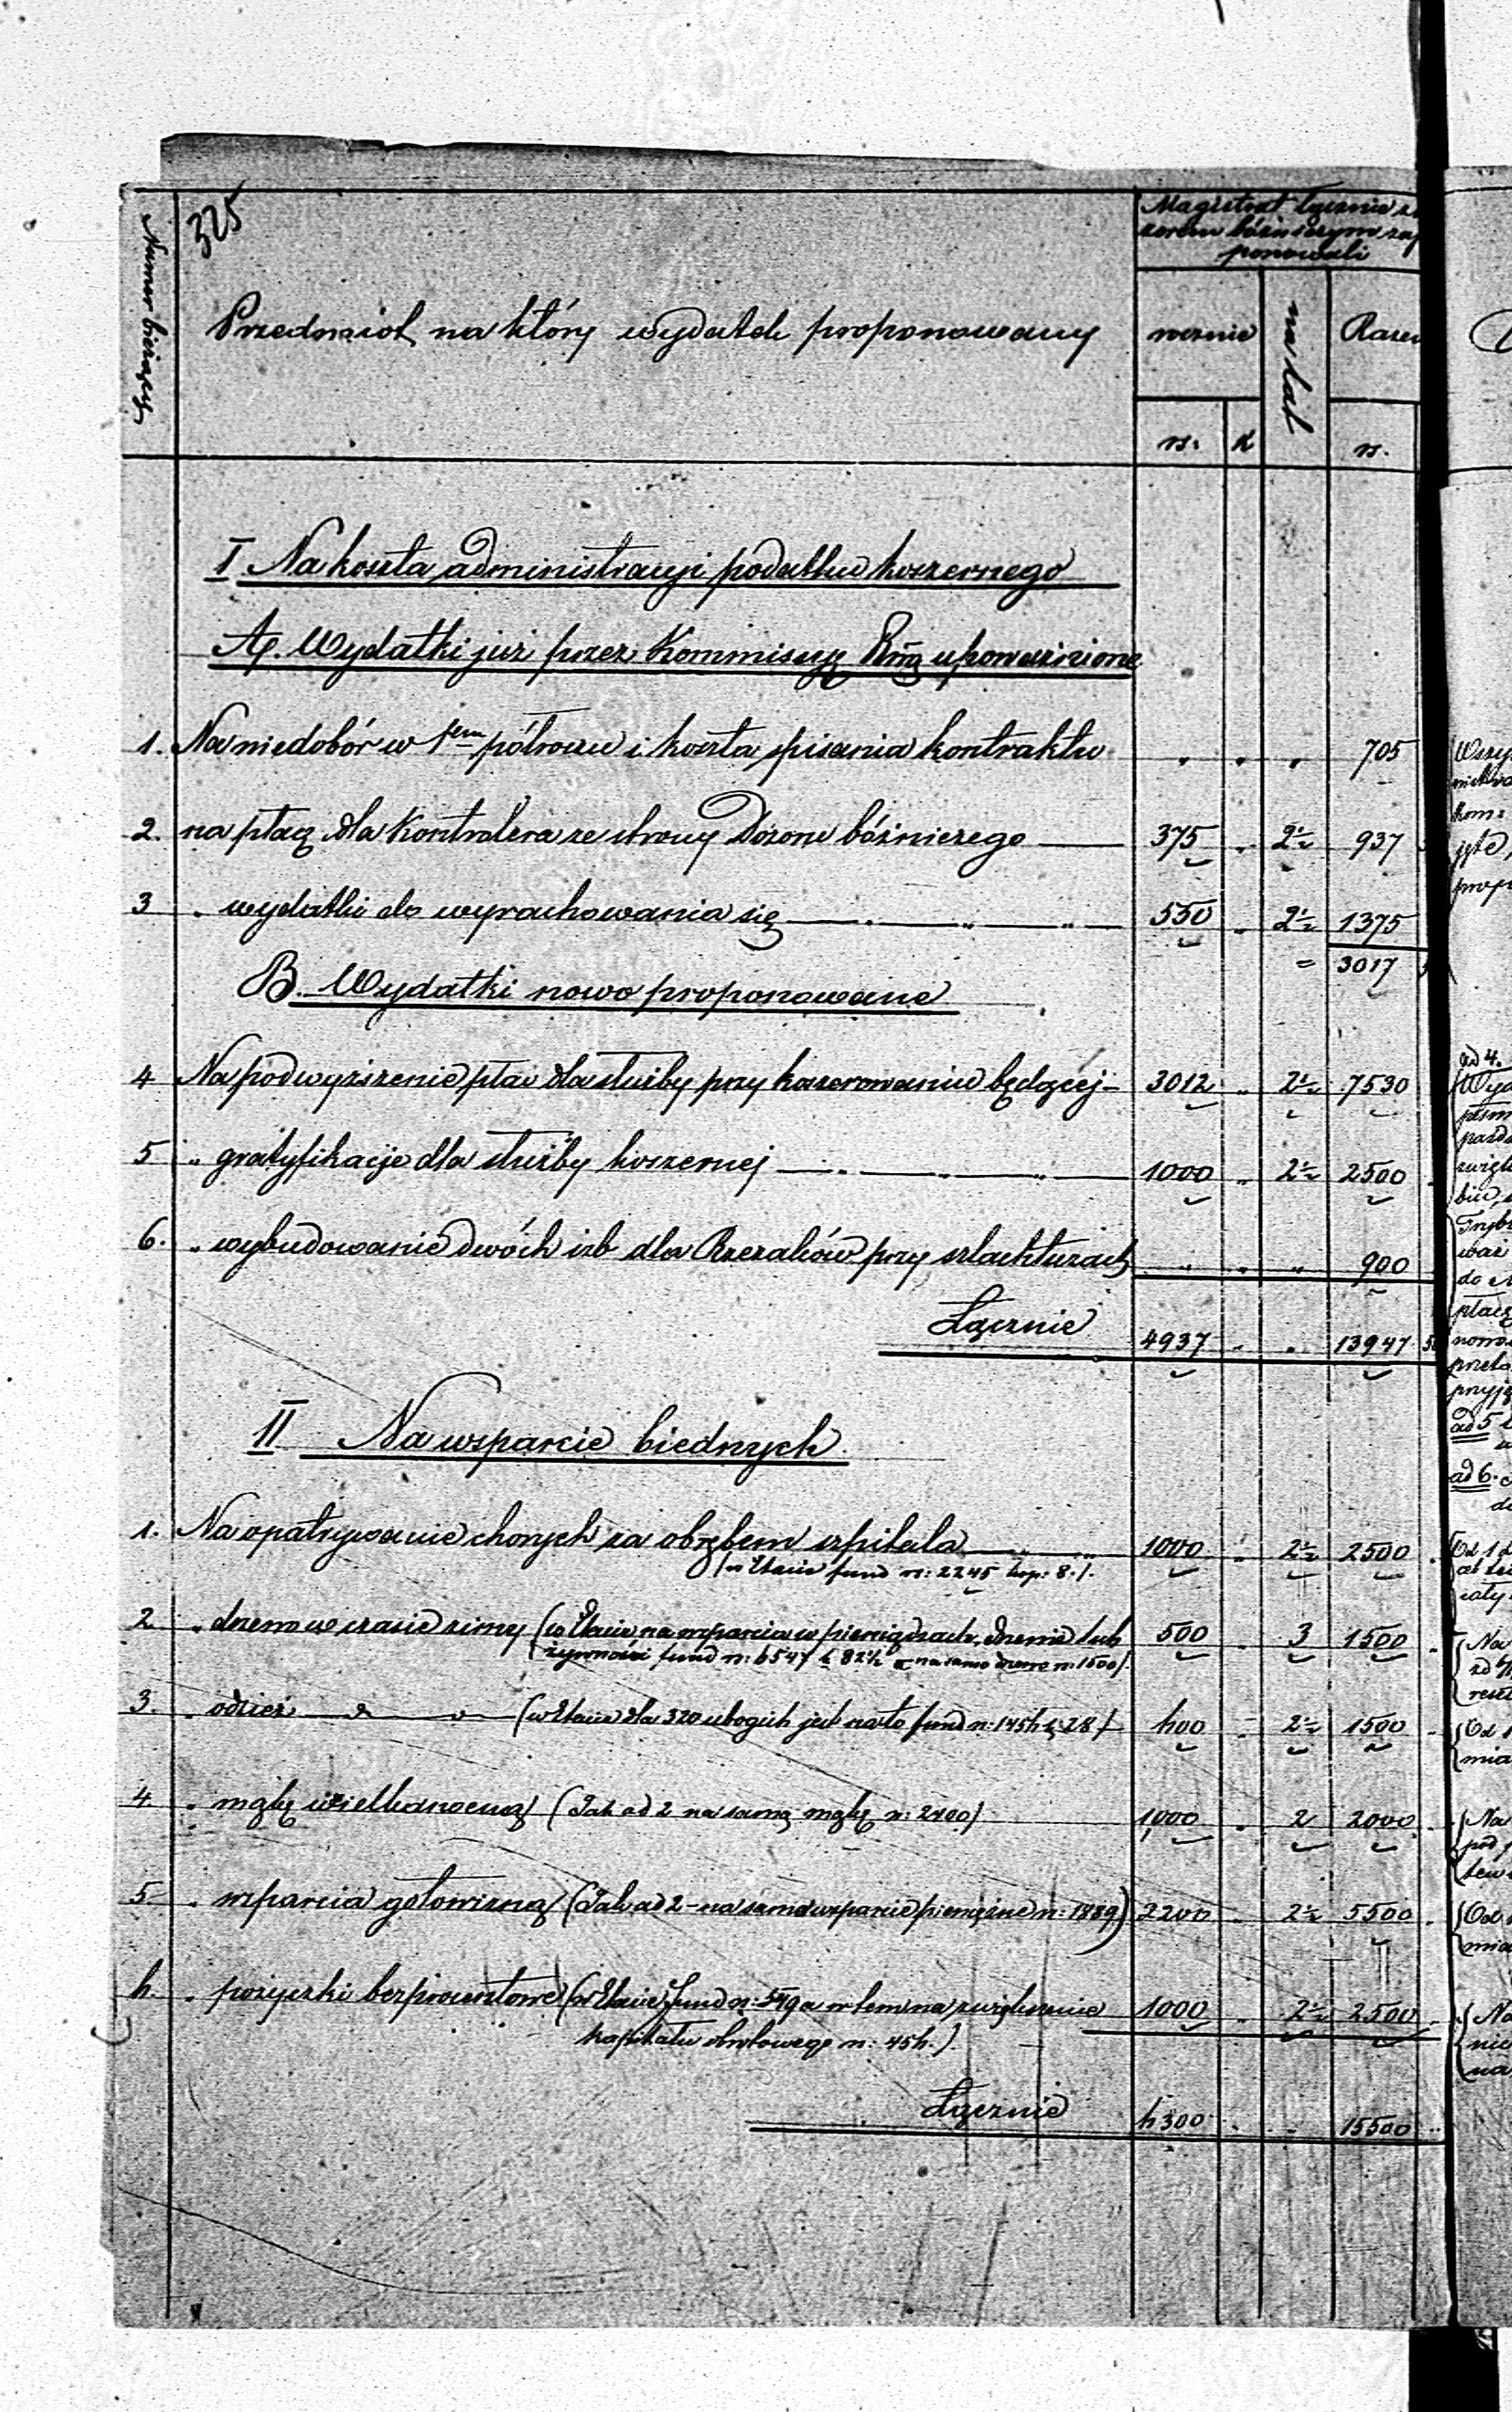 325
Numer bieżący
Przedmiot na który wydatek proponowany
Magistrat łącznie z
zorem bóżniczym zap
ponowali
rocznie
na lat
Razem
rs. k rs.
I Na koszta administracyi podatku koszernego
A. Wydatki już przez Kommisyę Rząd upoważnione
1. Na niedobór w 1em półroczu i koszta spisania kontraktu " " " 705
2. na płacę dla Kontrolera ze strony Dozoru bóżniczego 375 " 2½ 937
3 " wydatki do wyrachowania się " " " 550 " 2½ 1375
= 3017
B. Wydatki nowo proponowane
4 Na podwyższenie płac dla służby przy koszerowaniu będącej 3012 " 2½ 7530
5 " gratyfikacje dla służby koszernej " " " 1000 " 2½ 2500
6. " wybudowanie dwóch izb dla Rzezaków przy szlachtuzach " " " 900
Łącznie 4937 " " 13947 5
II Na wsparcie biednych
1. Na opatrywanie chorych za obrębem szpitala " " 1000 " 2½ 2500
(w Etacie fund rs: 2245 kop: 8.)
2 " drzewo w czasie zimy (w Etacie na wsparcia w pieniądzach, drzewie lub 500 " 3 1500
żywności fund rs: 6547 k 82½ a na samo drzewo rs: 1500)
3. " odzież (w Etacie dla 320 ubogich jest na to fund rs: 1456 k 28) 600 " 2½ 1500
4 " mąkę wielkanocną (Jak ad 2 na samą mąkę rs: 2400) 1000 " 2 2000
5 " wsparcia gotowizną (Jak ad 2 - na same wsparcie pieniężne rs: 1889) 2200 " 2½ 5500
6. " pożyczki bezprocentowe (w Etacie fund rs: 549 a w tem na zwiększenie 1000 " 2½ 2500
kapitału obrotowego rs: 456.)
Łącznie 6300 " " 15500 "
ad 4.
ad 5
ad 6.